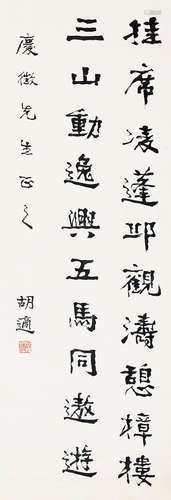 挂席凌蓬邱觀濤憩樟樓
三山動逸興五馬同遨遊
慶徵先生正之
胡適